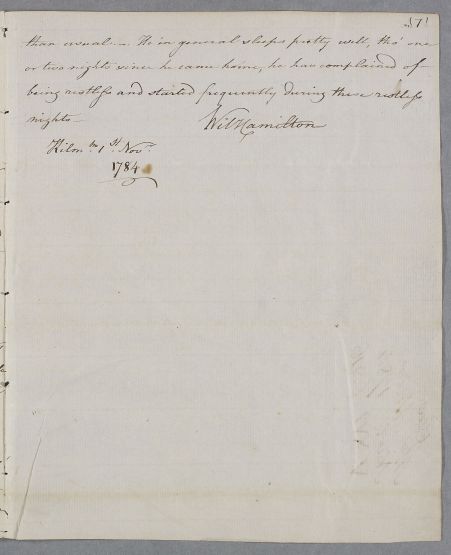 171
than usual. — He in general sleeps pretty well, tho' one
or two nights since he came home, he has complained of
being restless and started frequently during these restless
nights
Wil Hamilton
Kilm. 1st Novr.
1784